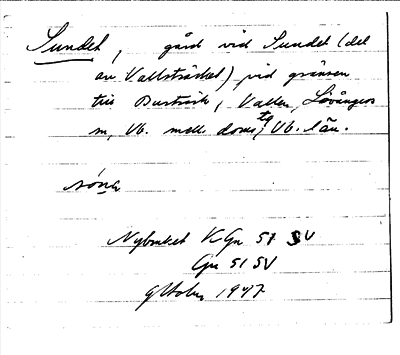 Sundet, gård vid Sundet (del
av Vallsträsket) vid gränsen
till Burträsk, Vallen, Lövångers
sn, Vb. mell. doms tg, Vb. län.
Nybruket K Gn 51 SV
Gn 51 SV
1947